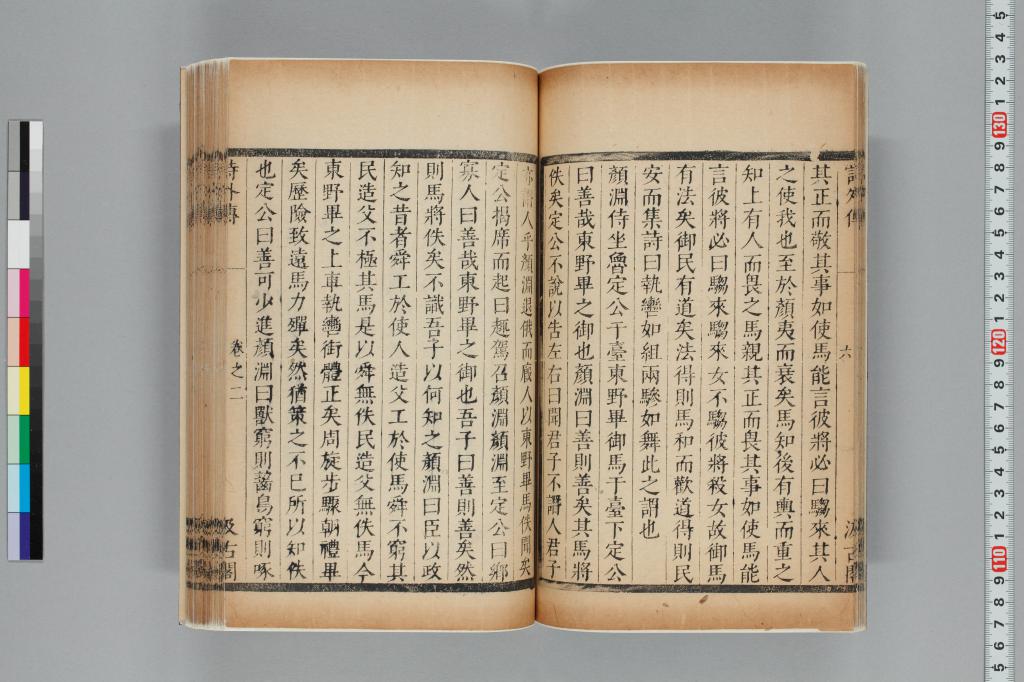 詩外傳
六
汲古閣
其正而敬其事如使馬能言彼將必曰騶來其人
之使我也至於顏夷而衰矣馬知後有輿而重之
知上有人而畏之馬親其正而畏其事如使馬能
言彼將必曰騶來騶來女不騶彼將殺女故御馬
有法矣御民有道矣法得則馬和而歡道得則民
安而集詩曰執轡如組兩驂如舞此之謂也
顏淵侍坐魯定公于臺東野畢御馬于臺下定公
曰善哉東野畢之御也顏淵曰善則善矣其馬將
佚矣定公不說以告左右曰聞君子不譖人君子
亦譖人乎顏淵退俄而厩人以東野畢馬佚聞矣
定公揭席而起曰趣駕召顏淵顏淵至定公曰鄉
寡人曰善哉東野畢之御也吾子曰善則善矣然
則馬將佚矣不識吾子以何知之顏淵曰臣以政
知之昔者舜工於使人造父工於使馬舜不窮其
民造父不極其馬是以舜無佚民造父無佚馬今
東野畢之上車執轡銜體正矣周旋步驟朝禮畢
矣歷險致遠馬力殫矣然猶策之不已所以知佚
也定公曰善可少進顏淵曰獸窮則齧鳥窮則啄
詩外傳
卷之二
汲古閣